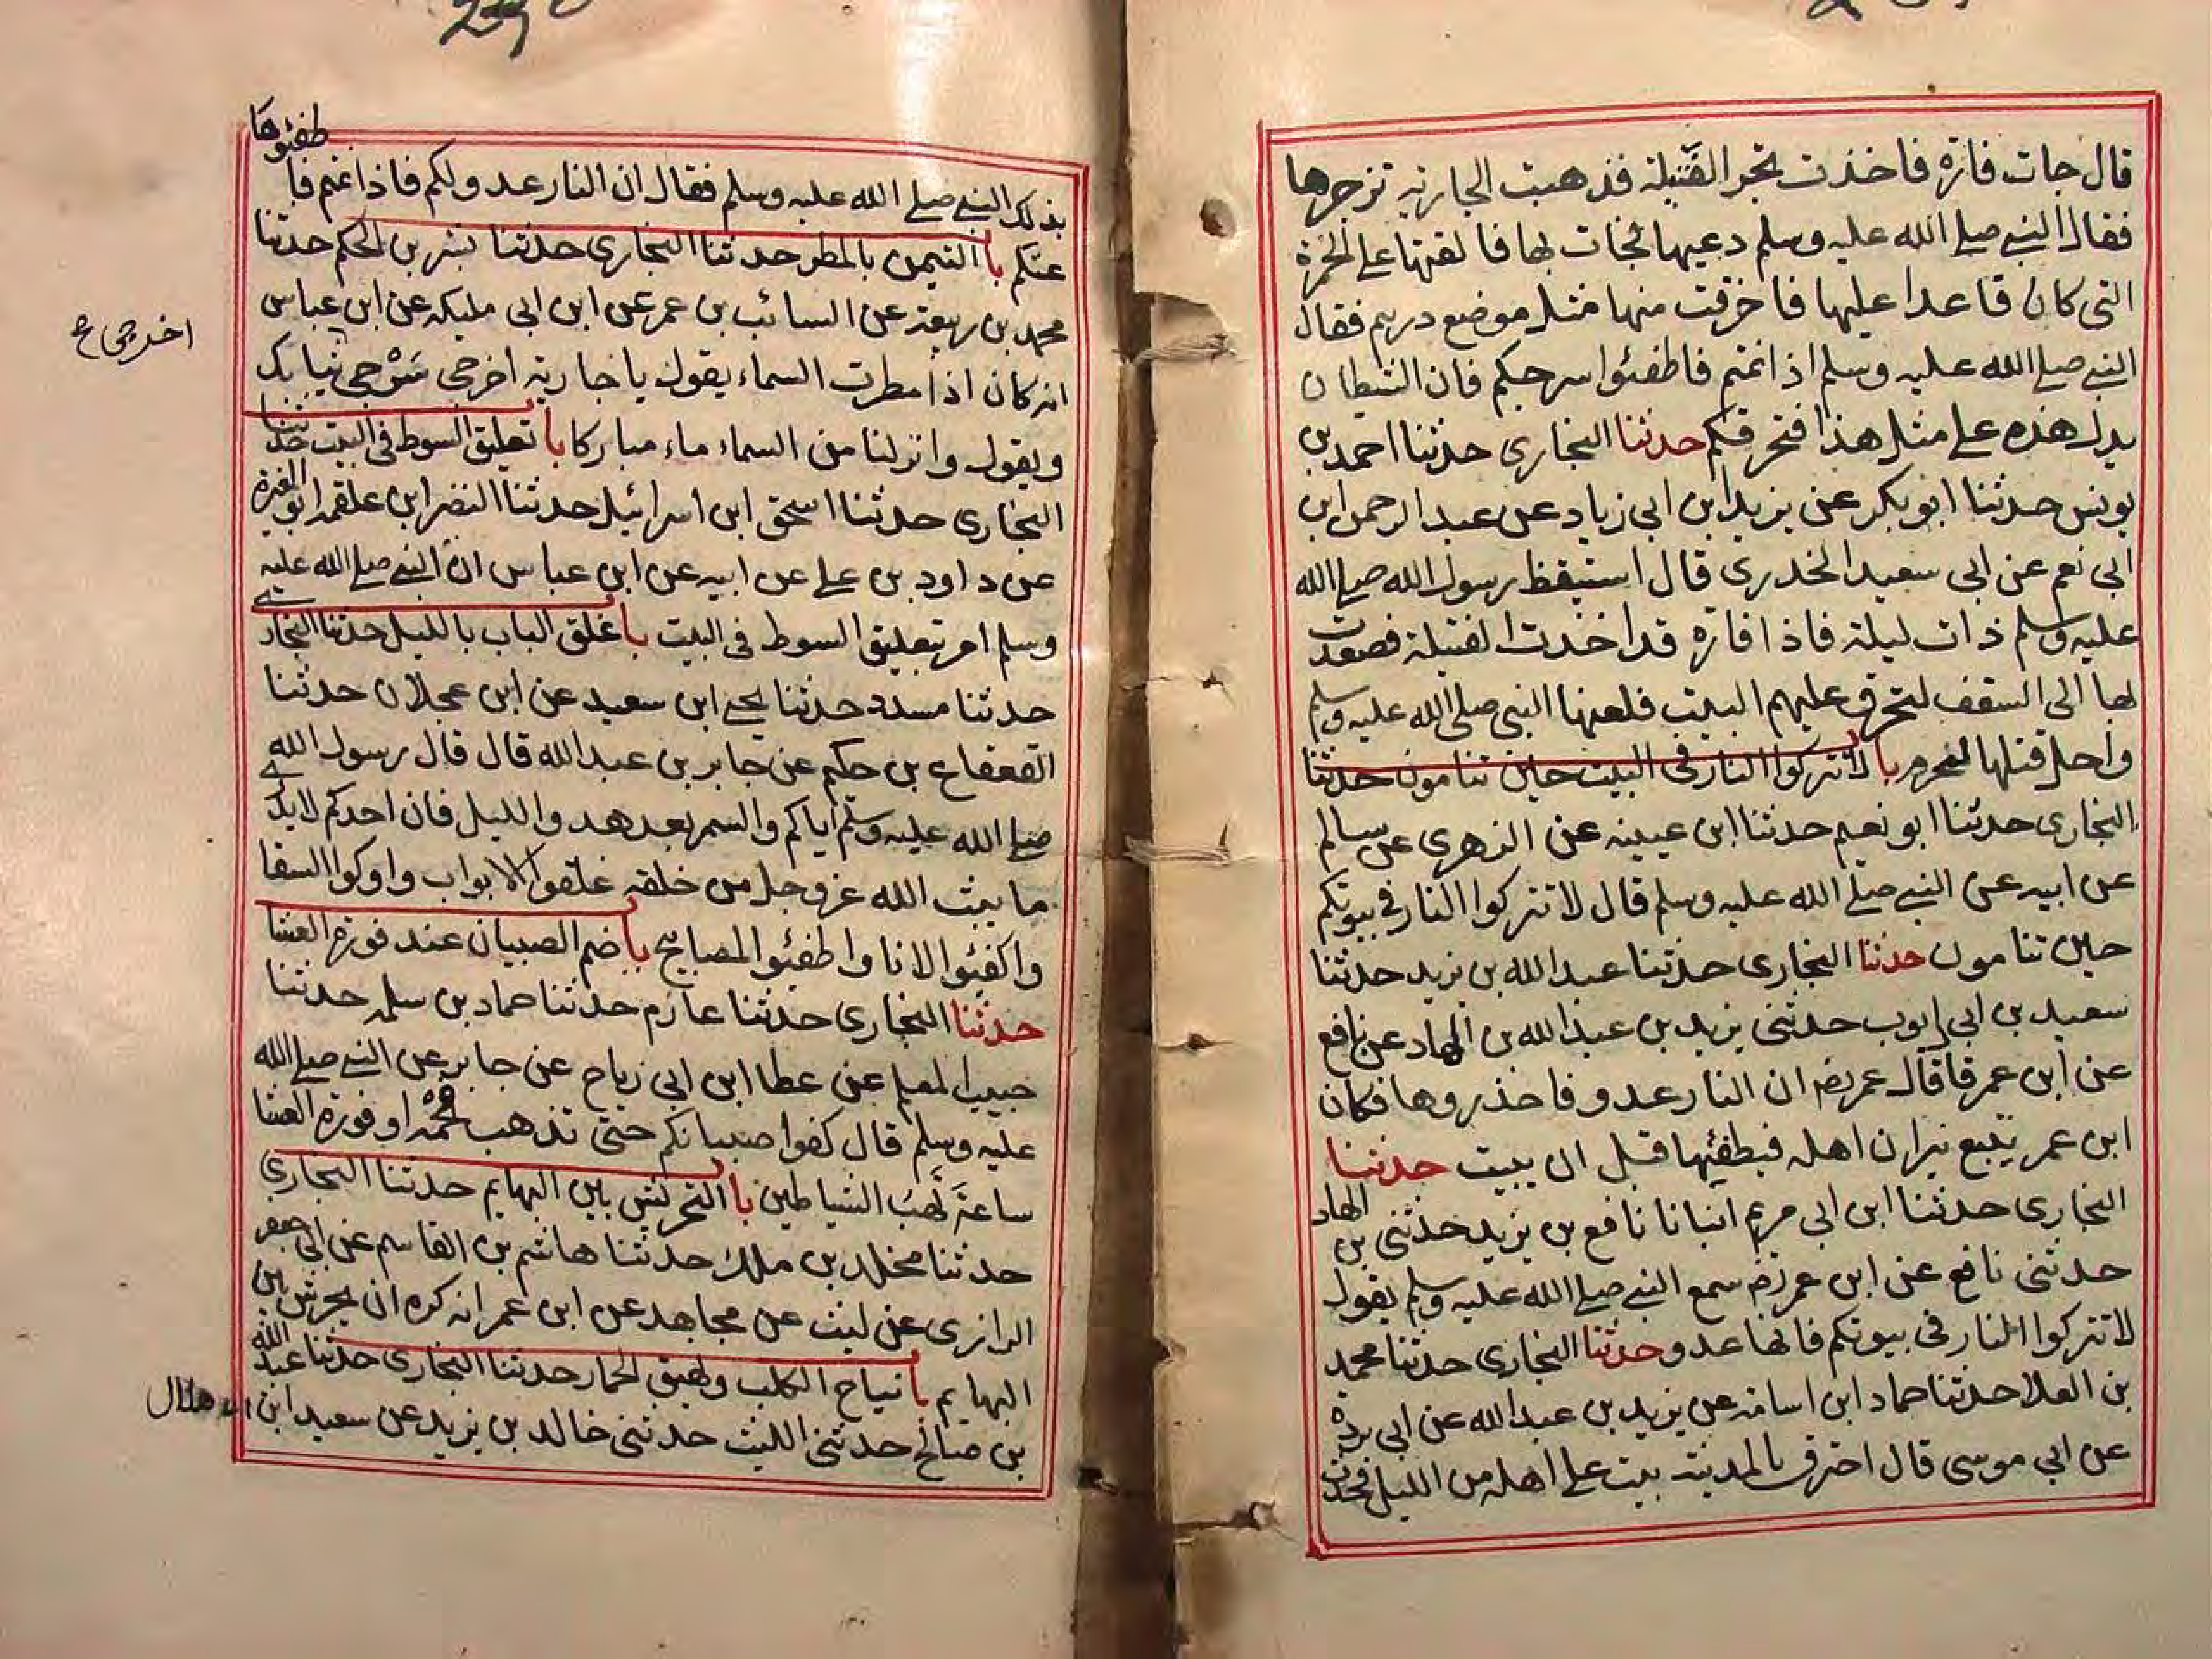 قال جات فارة فاخذت تجر الفتيلة فذهبت الجارية تزجرها
فقال النبي صلے الله عليه وسلم دعيها فجات بها فالقتها علے الخمرة
التى كان قاعدا عليها فاحرقت منها مثل موضع درهم فقال
النبي صلے الله عليه وسلم اذا نمتم فاطفئوا سرجكم فان الشيطان
يدل هذه علے مثل هذا فتحرقكم حدثنا البخارى حدثنا احمد بن
يونس حدثنا ابو بكر عن يزيد ابن ابى زياد عن عبد الرحمن ابن
ابى نعم عن ابى سعيد الخدرى قال استيقظ رسول الله صلے الله
عليه وسلم ذات ليلة فاذا فارة قد اخذت الفتيلة فصعدت
بها الى السقف لتحرق عليهم البيت فلعنها النبى صلى الله عليه وسلم
واحل قتلها للمحرم با لا تتركوا النار فى البيت حين تنامون حدثنا
البخارى حدثنا ابو نعيم حدثنا ابن عيينه عن الزهرى عن سالم
عن ابيه عن النبي صلے الله عليه وسلم قال لا تتركوا النار فى بيوتكم
حين تنامون حدثنا البخارى حدثنا عبد الله بن يزيد حدثنا
سعيد بن ابى ايوب حدثنى يزيد بن عبد الله بن الهاد عن نافع
عن ابن عمر قا قال عمر رضـ ان النار عدو فاحذروها فكان
ابن عمر يتبع نيران اهله فيطفئها قبل ان يبيت حدثنا
البخارى حدثنا ابن ابى مريم انبانا نافع بن يزيد حدثنى بن الهاد
حدثنى نافع عن ابن عمر رضـ سمع النبي صلے الله عليه وسلم يقول
لا تتركوا النار فى بيوتكم فانها عدو حدثنا البخارى حدثنا محمد
بن العلا حدثنا حماد ابن اسامه عن يزيد بن عبد الله عن ابى بردة
عن ابى موسى قال احترق بالمدينة بيت علے اهله من الليل فحدث
بذلك النبي صلے الله عليه وسلم فقال ان النار عدو لكم فاذا نمتم فاطفئوها
عنكم با التيمن بالمطر حدثنا البخارى حدثنا بشر بن الحكم حدثنا
محمد بن ربيعة عن السائب بن عمر عن ابن ابى مليكه عن ابن عباس
انه كان اذا مطرت السماء يقول يا جارية اخرجى سرجى ثيابك
اخرجى ع
ويقول وانزلنا من السماء ماء مباركا با تعليق السوط فى البيت حدثنا
البخارى حدثنا اسحق ابن اسرائيل حدثنا النضر ابن علقمه ابو المغيرة
عن داود بن علے عن ابيه عن ابن عباس ان النبي صلے الله عليه
وسلم امر بتعليق السوط فى البيت با غلق الباب بالليل حدثنا البخارے
حدثنا مسدد حدثنا يحيے ابن سعيد عن ابن عجلان حدثنا
القعقاع بن حكيم عن جابر بن عبد الله قال قال رسول الله
صلے الله عليه وسلم اياكم والسمر بعد هدو الليل فان احدكم لا يدرے
ما يبث الله عز وجل من خلقه غلقوا الابواب واوكوا السقا
واكفئوا الانا واطفئوا المصابيح با ضم الصبيان عند فورة العشا
حدثنا البخارى حدثنا عارم حدثنا حماد بن سلمه حدثنا
حبيب المعلم عن عطا ابن ابى رباح عن جابر عن النبي صلے الله
عليه وسلم قال كفوا صبيانكم حتى تذهب فحمة او فورة العشا
ساعة تهب الشياطين با التحريش بين البهايم حدثنا البخارى
حدثنا مخلد بن ملك حدثنا هاشم بن القاسم عن ابى جعفر
الرازى عن ليث عن مجاهد عن ابن عمر انه كره ان يحرش بين
البهايم با نباح الكلب ونهيق الحمار حدثنا البخارى حدثنا عبد الله
بن صالح حدثنى الليث حدثنى خالد بن يزيد عن سعيد ابن ابى هلال